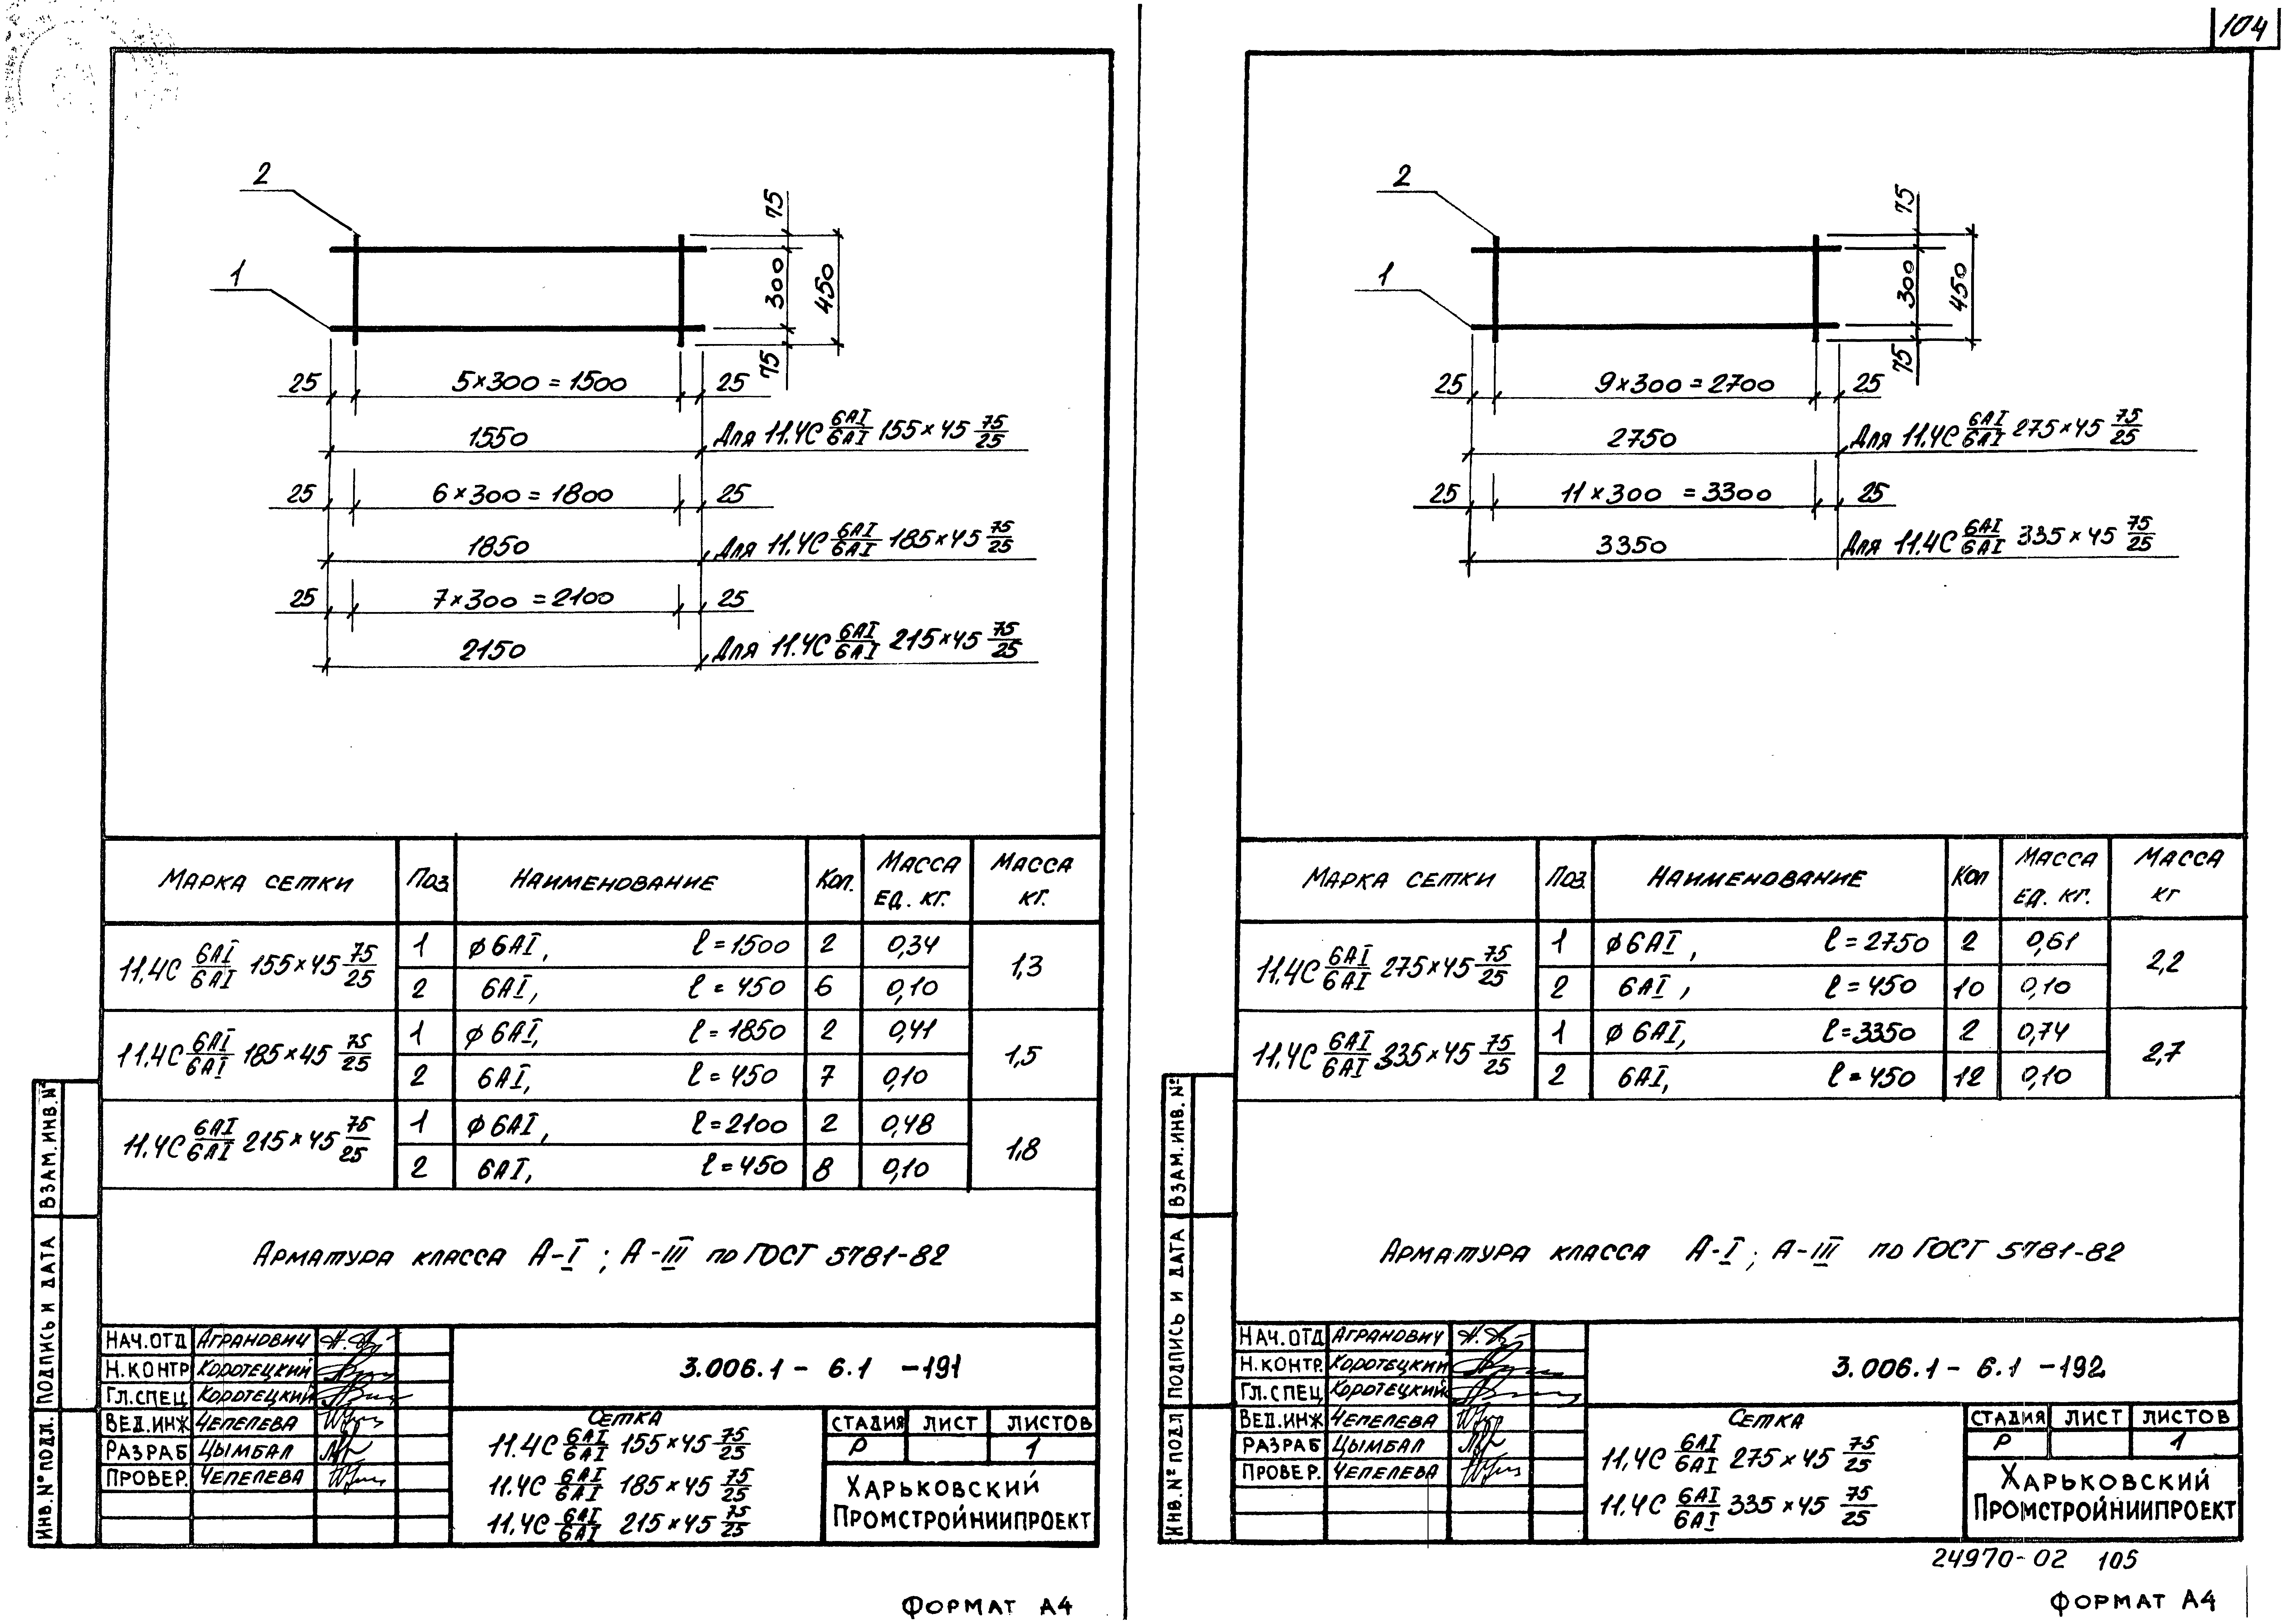 104
2
1
75
300
450
75
25 5×300=1500 25
1550 Для 11.4С 6АI/6АI 155×45 75/25
25 6×300=1800 25
1850 Для 11.4С 6АI/6АI 185×45 75/25
25 7×300=2100 25
2150 Для 11.4С 6АI/6АI 215×45 75/25
Марка сетки Поз Наименование Кол. Масса ед. кг. Масса кг.
11.4С 6АI/6АI 155×45 75/25 1 ϕ6АI, ℓ=1500 2 0,34 1,3
2 6АI, ℓ=450 6 0,10
11.4С 6АI/6АI 185×45 75/25 1 ϕ6АI, ℓ=1850 2 0,41 1,5
2 6АI, ℓ=450 7 0,10
11.4С 6АI/6АI 215×45 75/25 1 ϕ6АI, ℓ=2100 2 0,48 1,8
2 6АI, ℓ=450 8 0,10
Арматура класса А-I; А-III по ГОСТ 5781-82
ИНВ.№ПОДЛ. ПОДПИСЬ И ДАТА ВЗАМ.ИНВ.№
НАЧ.ОТД АГРАНОВИЧ
Н.КОНТР КОРОТЕЦКИЙ
ГЛ.СПЕЦ КОРОТЕЦКИЙ
ВЕД.ИНЖ ЧЕПЕЛЕВА
РАЗРАБ ЦЫМБАЛ
ПРОВЕР. ЧЕПЕЛЕВА
3.006.1 - 6.1 -191
Сетка
11.4С 6АI/6АI 155×45 75/25
11.4С 6АI/6АI 185×45 75/25
11.4С 6АI/6АI 215×45 75/25
СТАДИЯ ЛИСТ ЛИСТОВ
Р 1
ХАРЬКОВСКИЙ
ПРОМСТРОЙНИИПРОЕКТ
ФОРМАТ А4
2
1
75
300
450
75
25 9×300=2700 25
2750 Для 11.4С 6АI/6АI 275×45 75/25
25 11×300=3300 25
3350 Для 11.4С 6АI/6АI 335×45 75/25
Марка сетки Поз. Наименование Кол Масса ед. кг. Масса кг
11.4С 6АI/6АI 275×45 75/25 1 ϕ6АI, ℓ=2750 2 0,61 2,2
2 6АI, ℓ=450 10 0,10
11.4С 6АI/6АI 335×45 75/25 1 ϕ6АI, ℓ=3350 2 0,74 2,7
2 6АI, ℓ=450 12 0,10
Арматура класса А-I; А-III по ГОСТ 5781-82
ИНВ.№ПОДЛ ПОДПИСЬ И ДАТА ВЗАМ.ИНВ.№
НАЧ.ОТД АГРАНОВИЧ
Н.КОНТР. КОРОТЕЦКИЙ
ГЛ.СПЕЦ КОРОТЕЦКИЙ
ВЕД.ИНЖ ЧЕПЕЛЕВА
РАЗРАБ ЦЫМБАЛ
ПРОВЕР. ЧЕПЕЛЕВА
3.006.1 - 6.1 -192
Сетка
11.4С 6АI/6АI 275×45 75/25
11.4С 6АI/6АI 335×45 75/25
СТАДИЯ ЛИСТ ЛИСТОВ
Р 1
ХАРЬКОВСКИЙ
ПРОМСТРОЙНИИПРОЕКТ
24970-02 105
ФОРМАТ А4